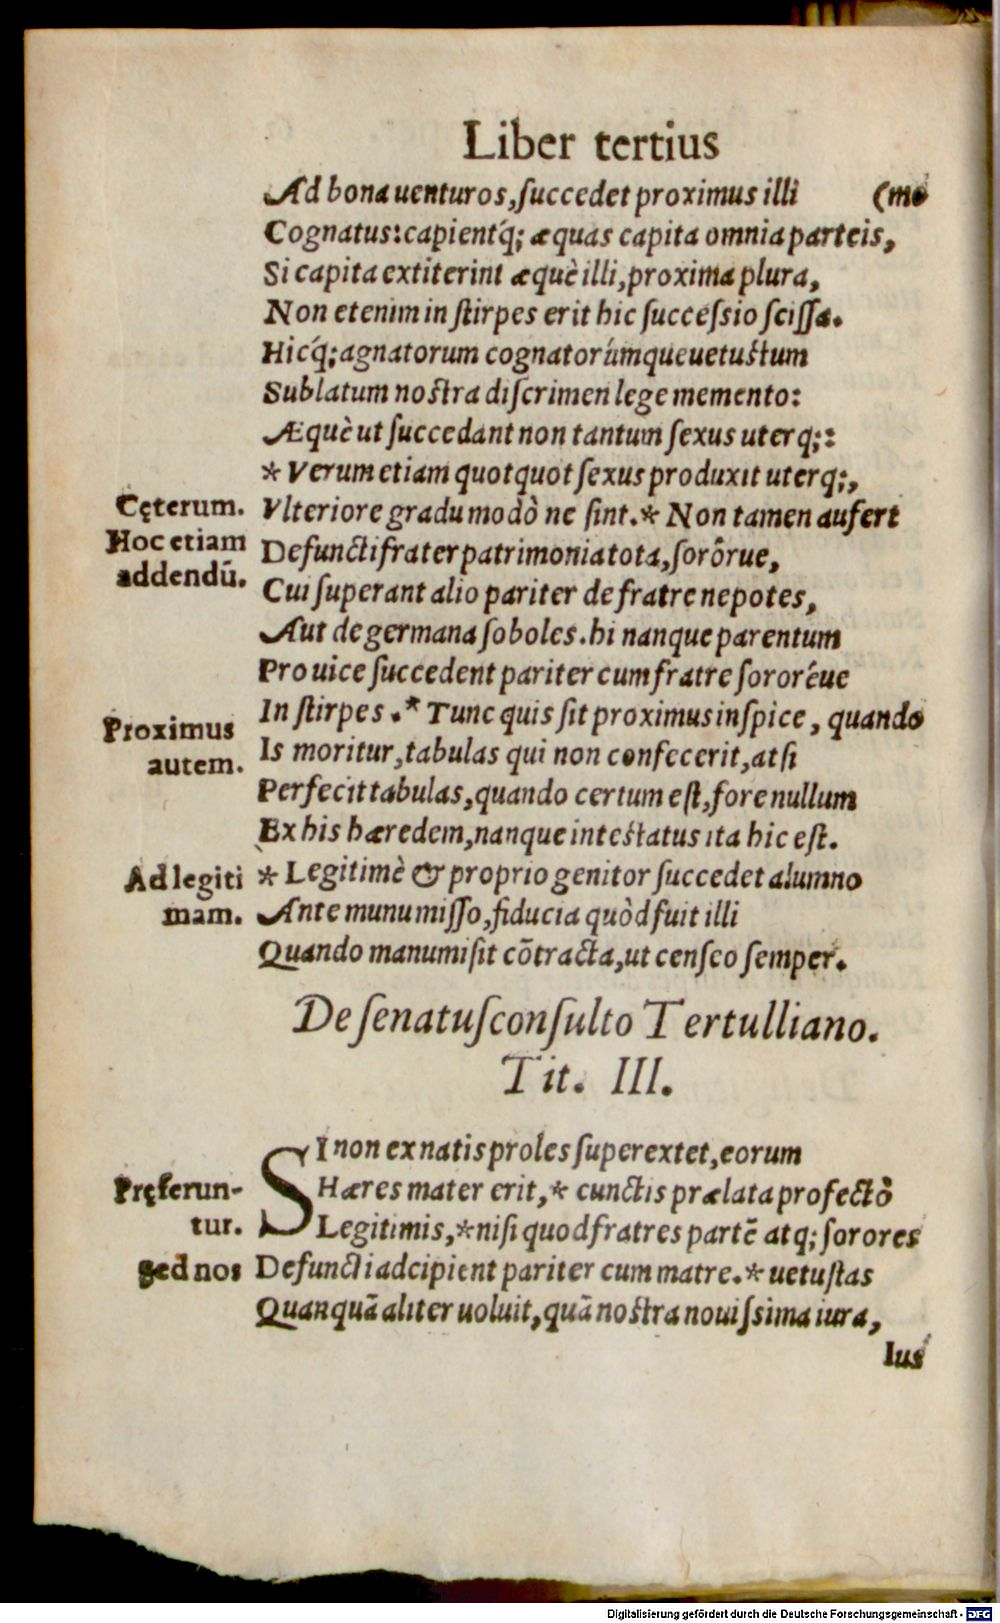 Liber tertius
Ad bona uenturos, ſuccedet proximus illi (mo
Cognatus: capient'q; æquas capita omnia parteis,
Si capita extiterint æquè illi, proxima plura,
Non etenim in ſtirpes erit hic ſucceſsio ſciſſa.
Hic'q; agnatorum cognatorúmque uetuſtum
Sublatum noſtra diſcrimen lege memento:
Æquè ut ſuccedant non tantum ſexus uterq;:
* Verum etiam quotquot ſexus produxit uterq;,
Cęterum. Vlteriore gradu modò ne ſint.* Non tamen aufert
Hoc etiam Defuncti frater patrimonia tota, ſorôrue,
addendū. Cui ſuperant alio pariter de fratre nepotes,
Aut de germana ſoboles. hi nanque parentum
Pro uice ſuccedent pariter cum fratre ſororéue
Proximus In ſtirpes.* Tunc quis ſit proximus inſpice, quando
autem. Is moritur, tabulas qui non confecerit, at ſi
Perfecit tabulas, quando certum eſt, fore nullum
Ex his hæredem, nanque inteſtatus ita hic eſt.
Ad legiti * Legitimè & proprio genitor ſuccedet alumno
mam. Ante munumiſſo, fiducia quòd fuit illi
Quando manumiſit cōtracta, ut cenſeo ſemper.
De ſenatuſconſulto Tertulliano.
Tit. III.
SI non ex natis proles ſuperextet, eorum
Pręferun- Hæres mater erit,* cunctis prælata profectò
tur. Legitimis,* niſi quod fratres partē atq; ſorores
Sed nos Defuncti adcipient pariter cum matre.* uetuſtas
Quanquā aliter uoluit, quā noſtra nouiſsima iura,
Ius
Digitalisierung gefördert durch die Deutsche Forschungsgemeinschaft - DFG